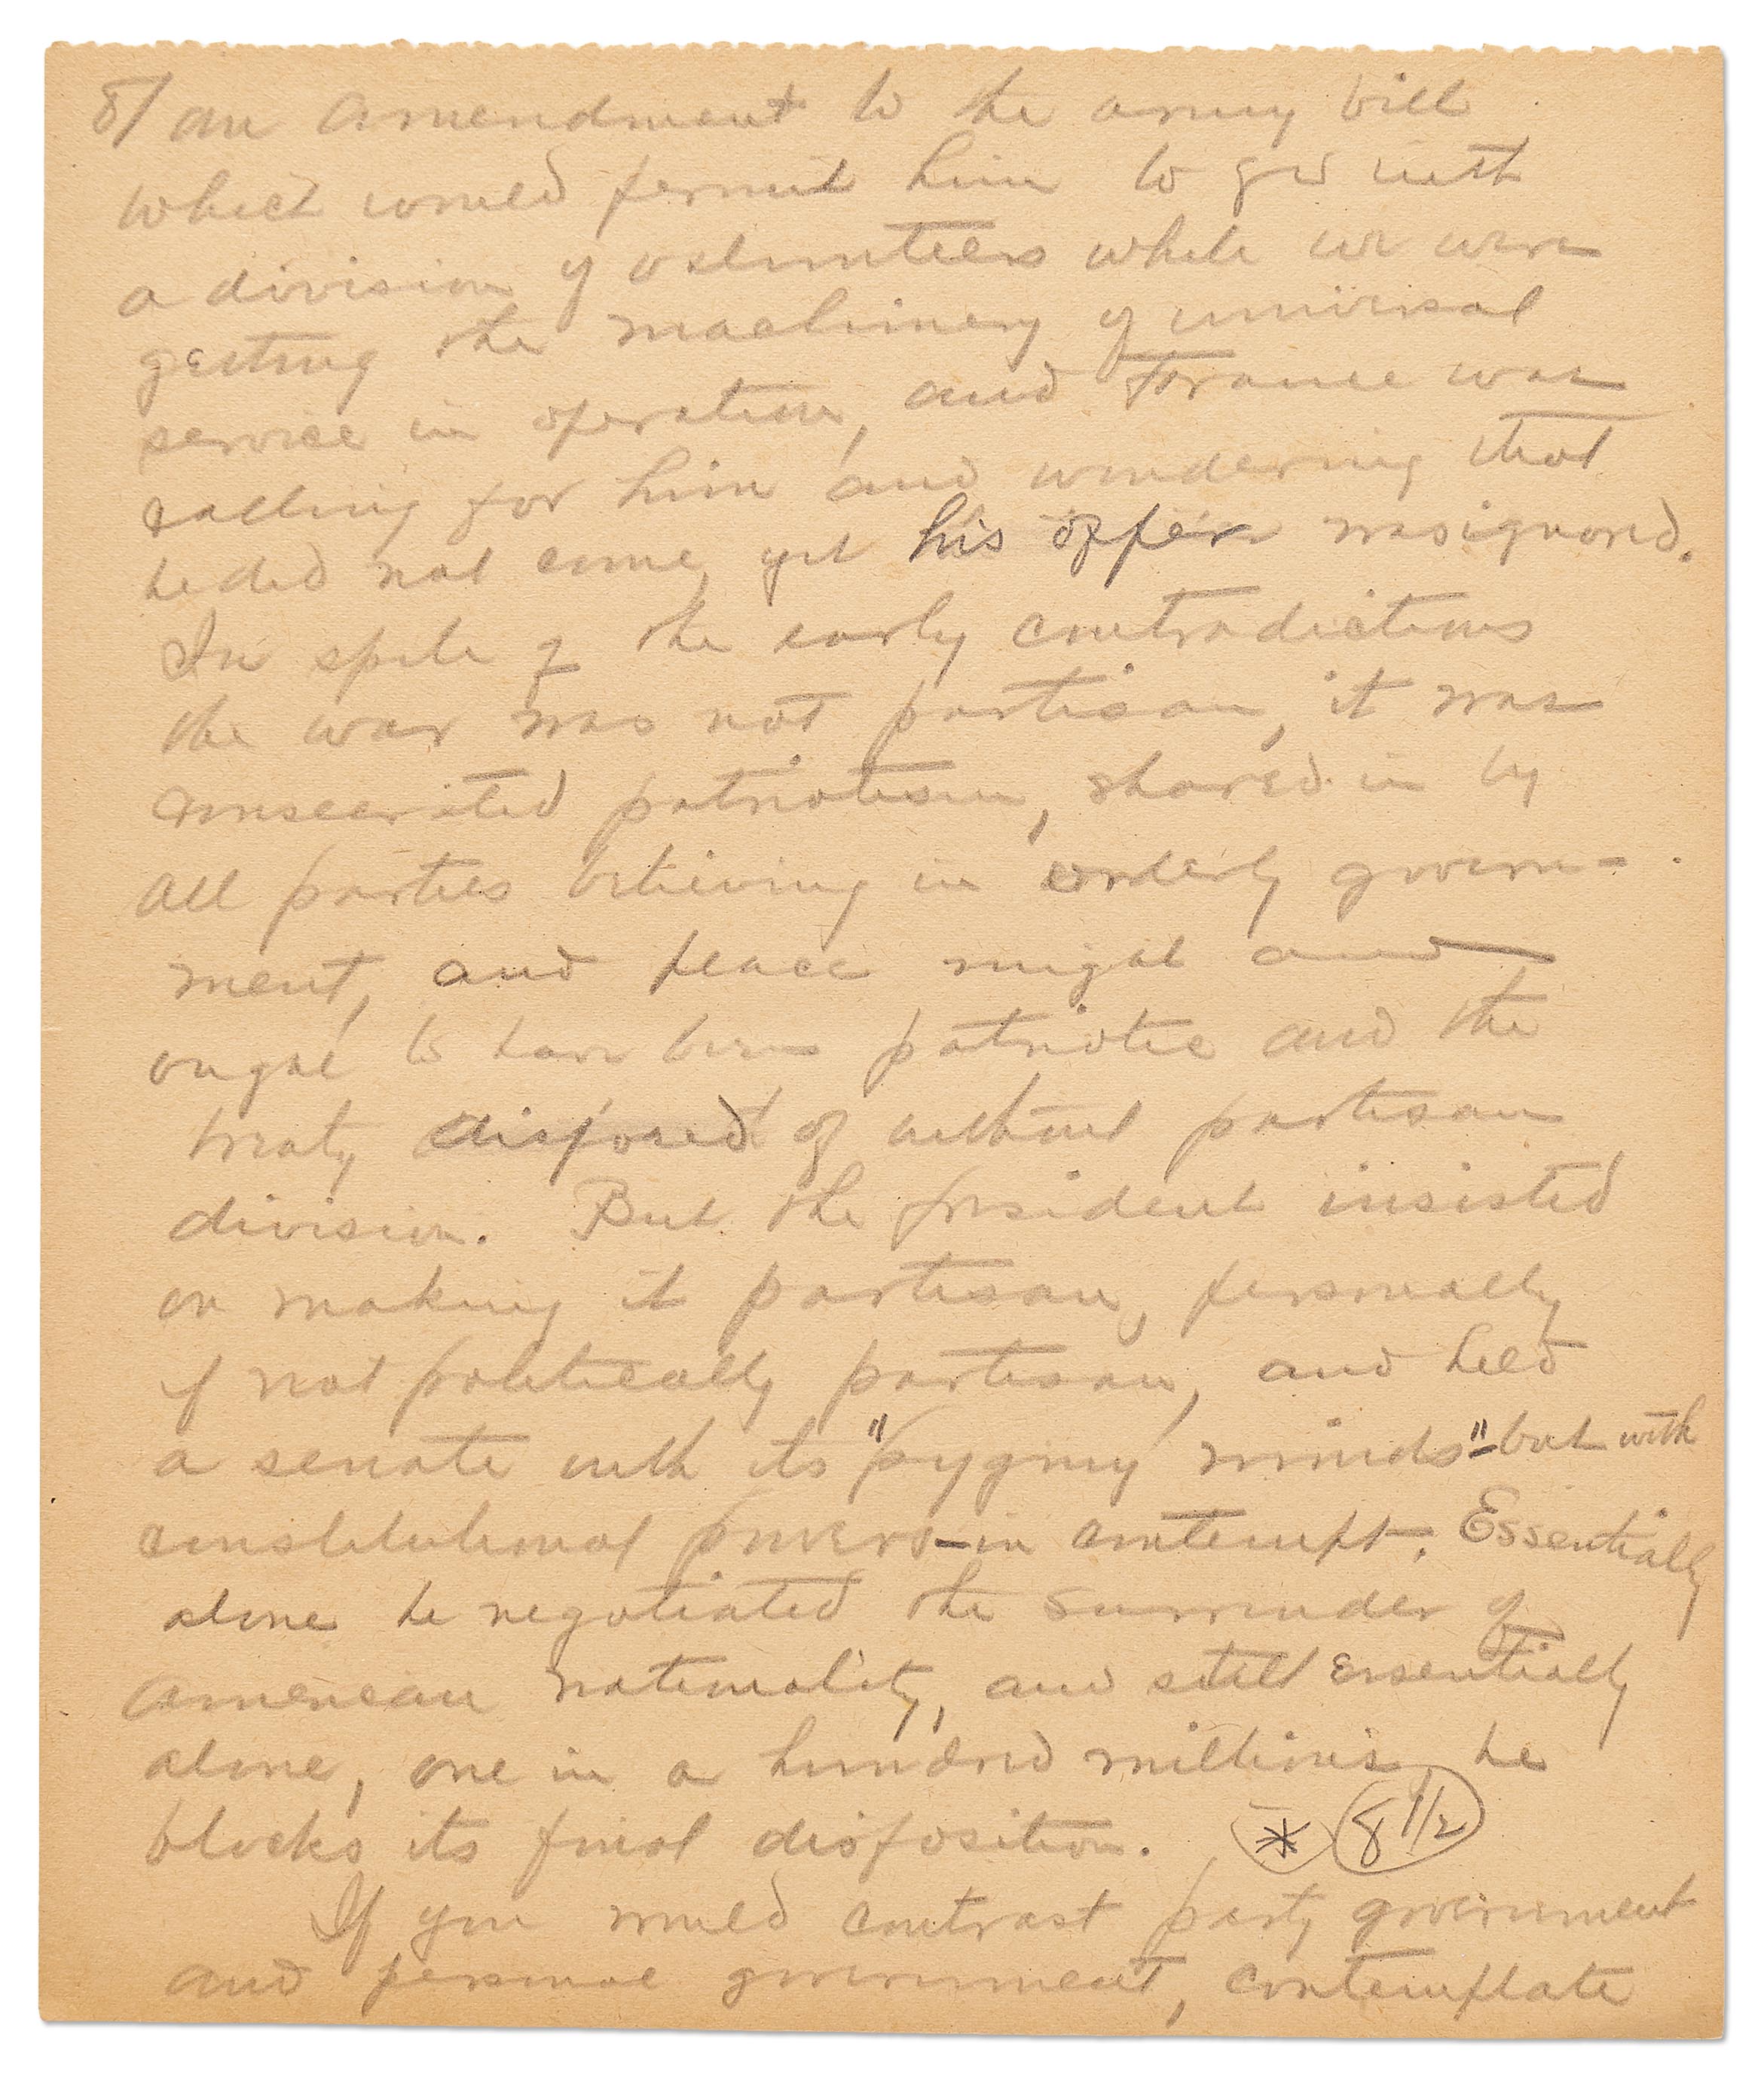 8/ an amendment to the army bill
which would permit him to go with
a division of volunteers while we were
getting the machinery of universal
service in operation, and France was
calling for him and wondering that
he did not come, yet his offer was ignored.
In spite of the early contradictions
the war was not partisan, it was
consecrated patriotism, shared in by
all parties believing in orderly govern-
ment, and peace might and
ought to have been patriotic and the
treaty disposed of without partisan
division. But the president insisted
on making it partisan, personally
if not politically partisan, and held
a senate with its "pygmy minds" - but with
constitutional powers - in contempt. Essentially
alone he negotiated the surrender of
American nationality, and still essentially
alone, one in a hundred millions, he
blocks its final disposition. * 8 1/2
If you would contrast party government
and personal government, contemplate